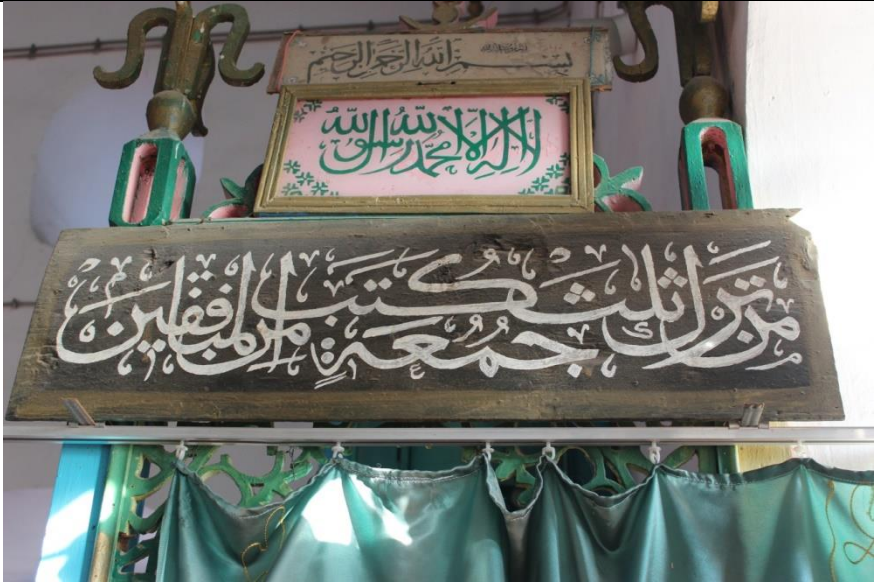 بسم الله الرحمن الرحيم
لا اله الا الله محمد رسول الله
من ترك ثلث جمعة كتب من المنافقين